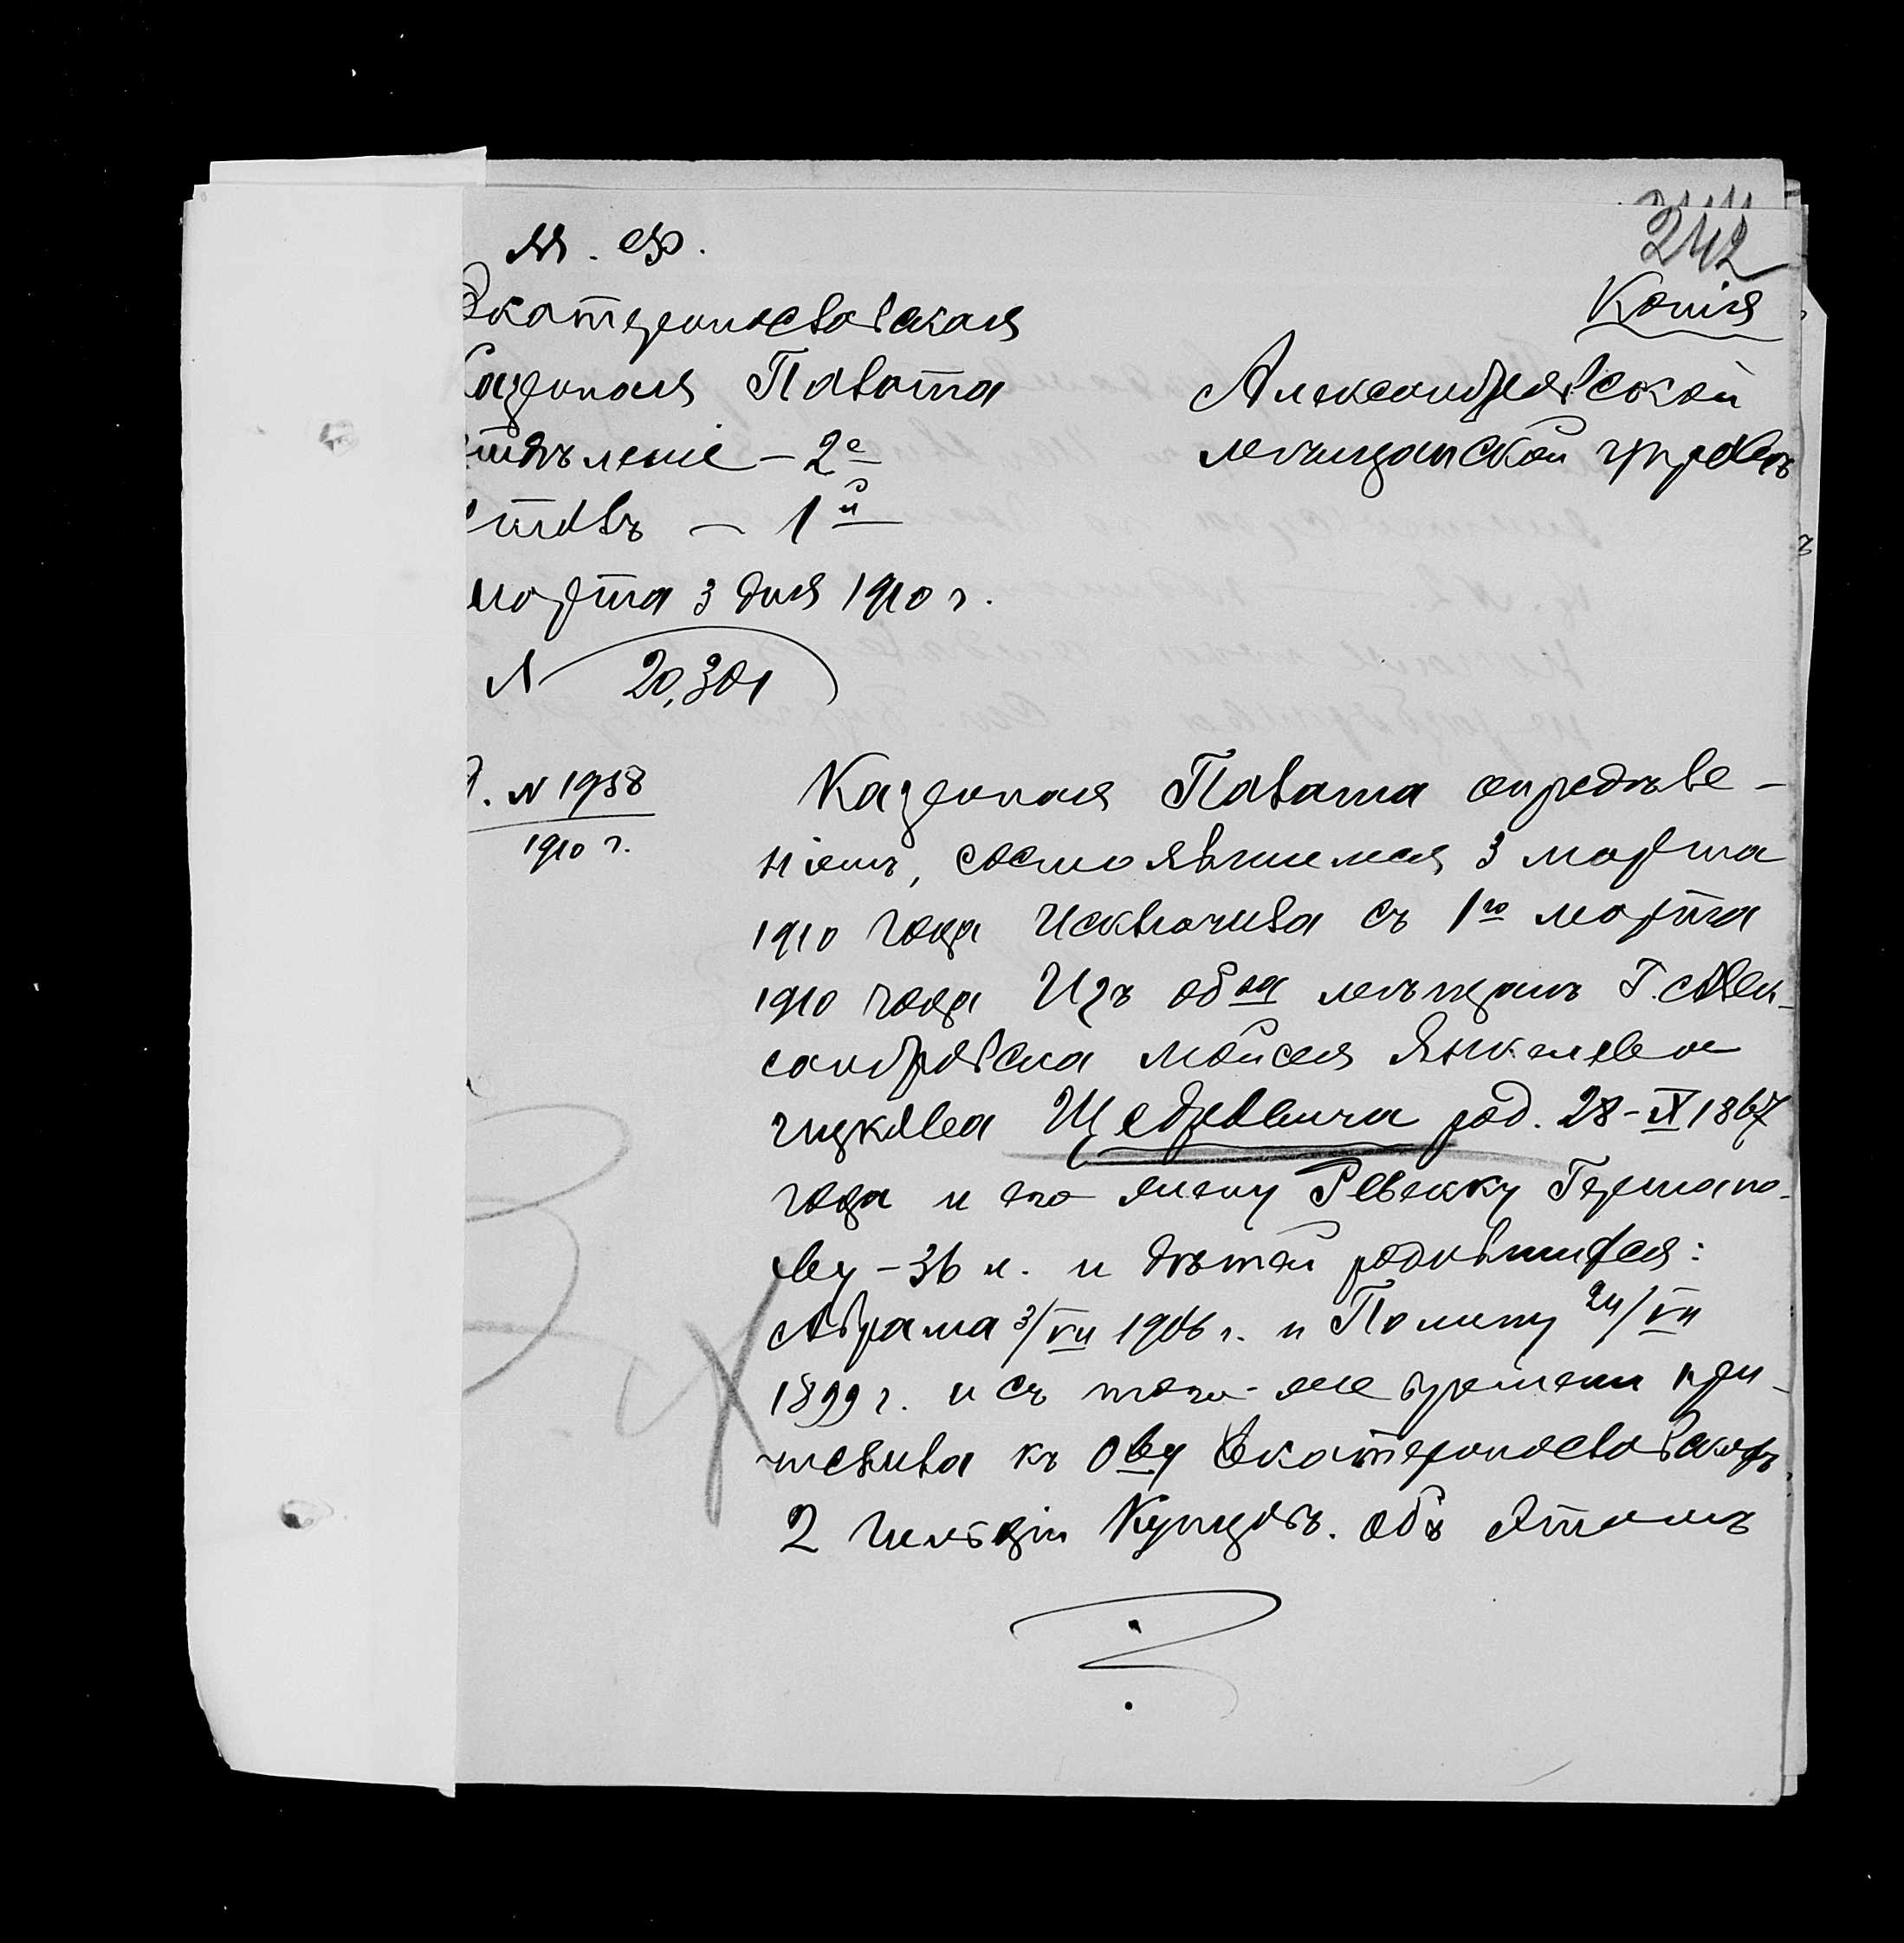 242
М. Ф.
Копія
Екатеринославская
Казенная Палата
Отдѣленіе – 2е
Столъ – 1й
Марта 3 дня 1910 г.
N 20,301
Александровской
мѣщанской управѣ
Д. N 1958
1910 г.
Казенная Палата опредѣле-
ніемъ, состоявшимся 3 марта
1910 года исключила съ 1го марта
1910 года изъ об-ва мѣщанъ Г. Алек-
сандровска Мойсея Янкелева
Ицкова Щедровича род. 28-IX 1867
года и его жену Ревекку Германо-
ву – 36 л. и дѣтей родившихся:
Абрама 3/VII 1906 г. и Полину 24/VII
1899 г. и съ того-же времени при-
числила къ О-ву Екатеринославскихъ
2 гильдіи Купцовъ. Объ этомъ